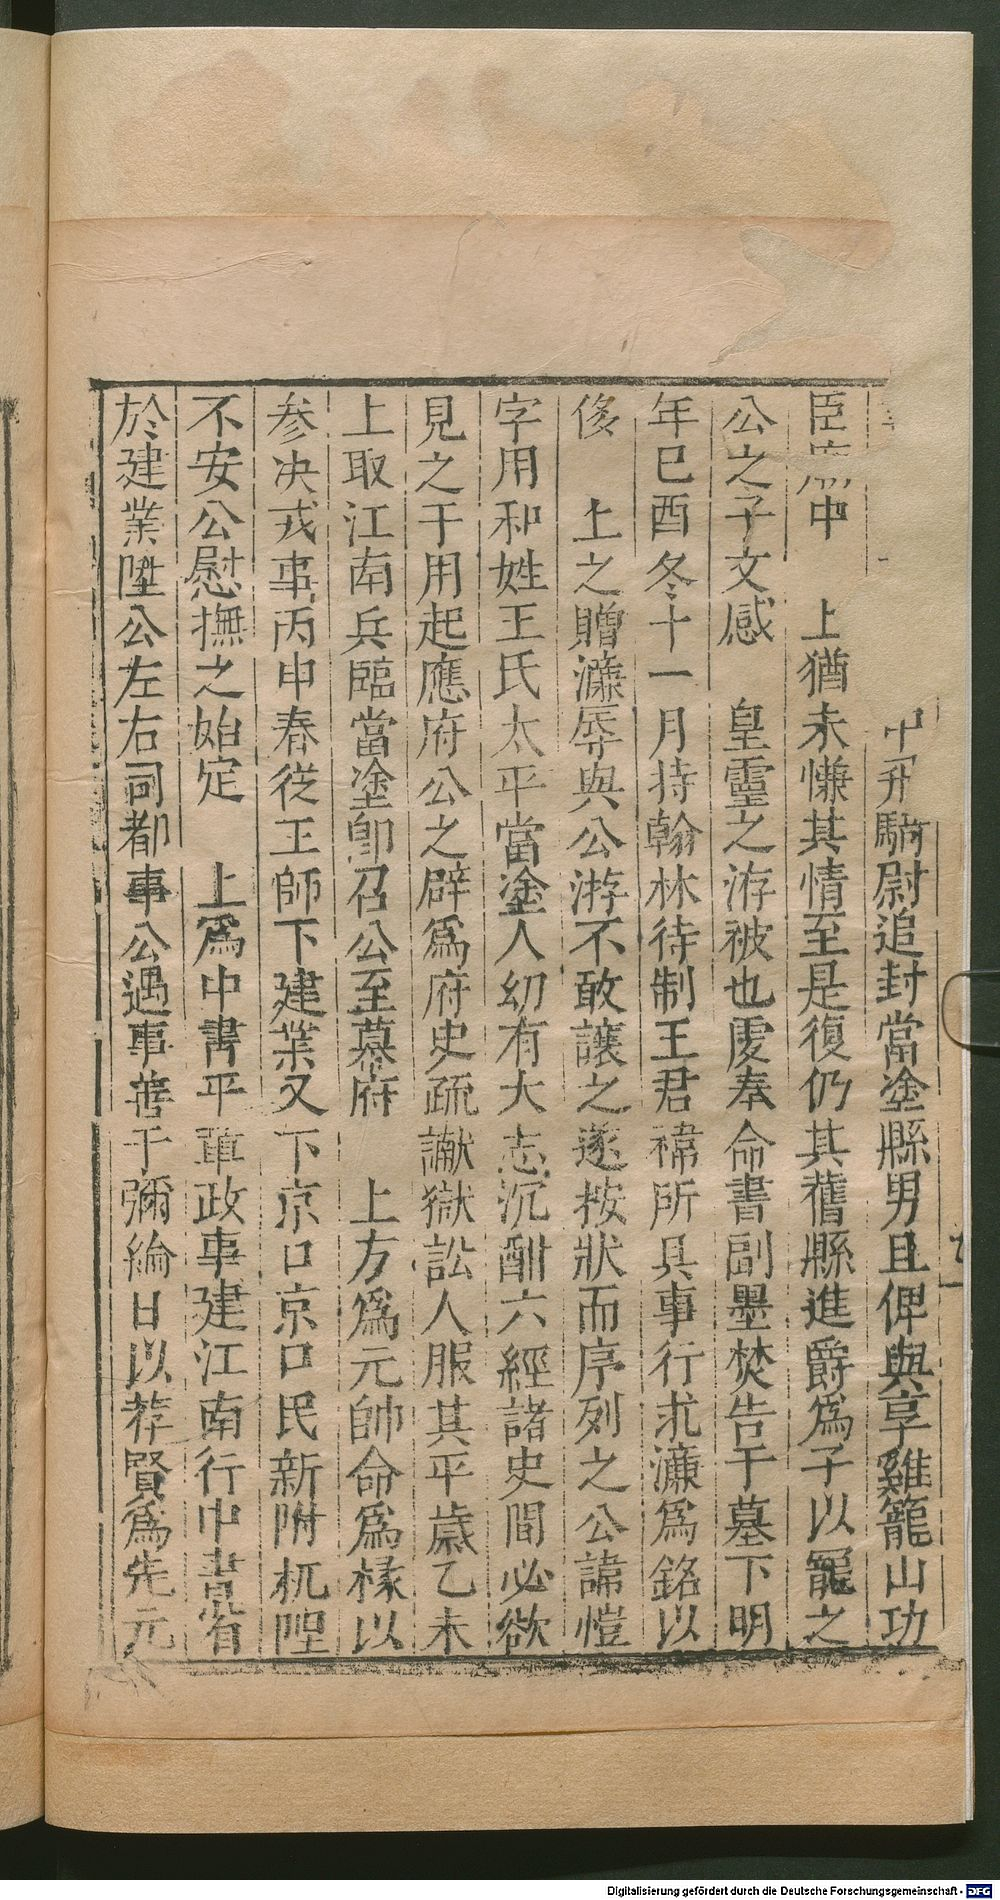 升騎尉追封當塗縣男且俾與享雞籠山功
臣廟中 上猶未慊其情至是復仍其舊縣進爵為子以罷之
公之子文感 皇靈之洊被也䖍奉命書副墨焚告于墓下明
年巳酉冬十一月持翰林待制王君褘所具事行求濂為銘以
侈 上之贈濂辱與公游不敢讓之遂按狀而序列之公諱愷
字用和姓王氏太平當塗人幼有大志沉酣六經諸史間必欲
見之于用起應府公之辟為府史疏讞獄訟人服其平歲乙未
上取江南兵臨當塗卽召公至幕府 上方為元帥命為椽以
參决戎事丙申春從王師下建業又下京口京口民新附杌隉
不安公慰撫之始定 上為中書平章政事建江南行中書省
於建業陞公左右司都事公遇事善于彌綸日以荐賢為先元
Digitalisierung gefördert durch die Deutsche Forschungsgemeinschaft - DFG